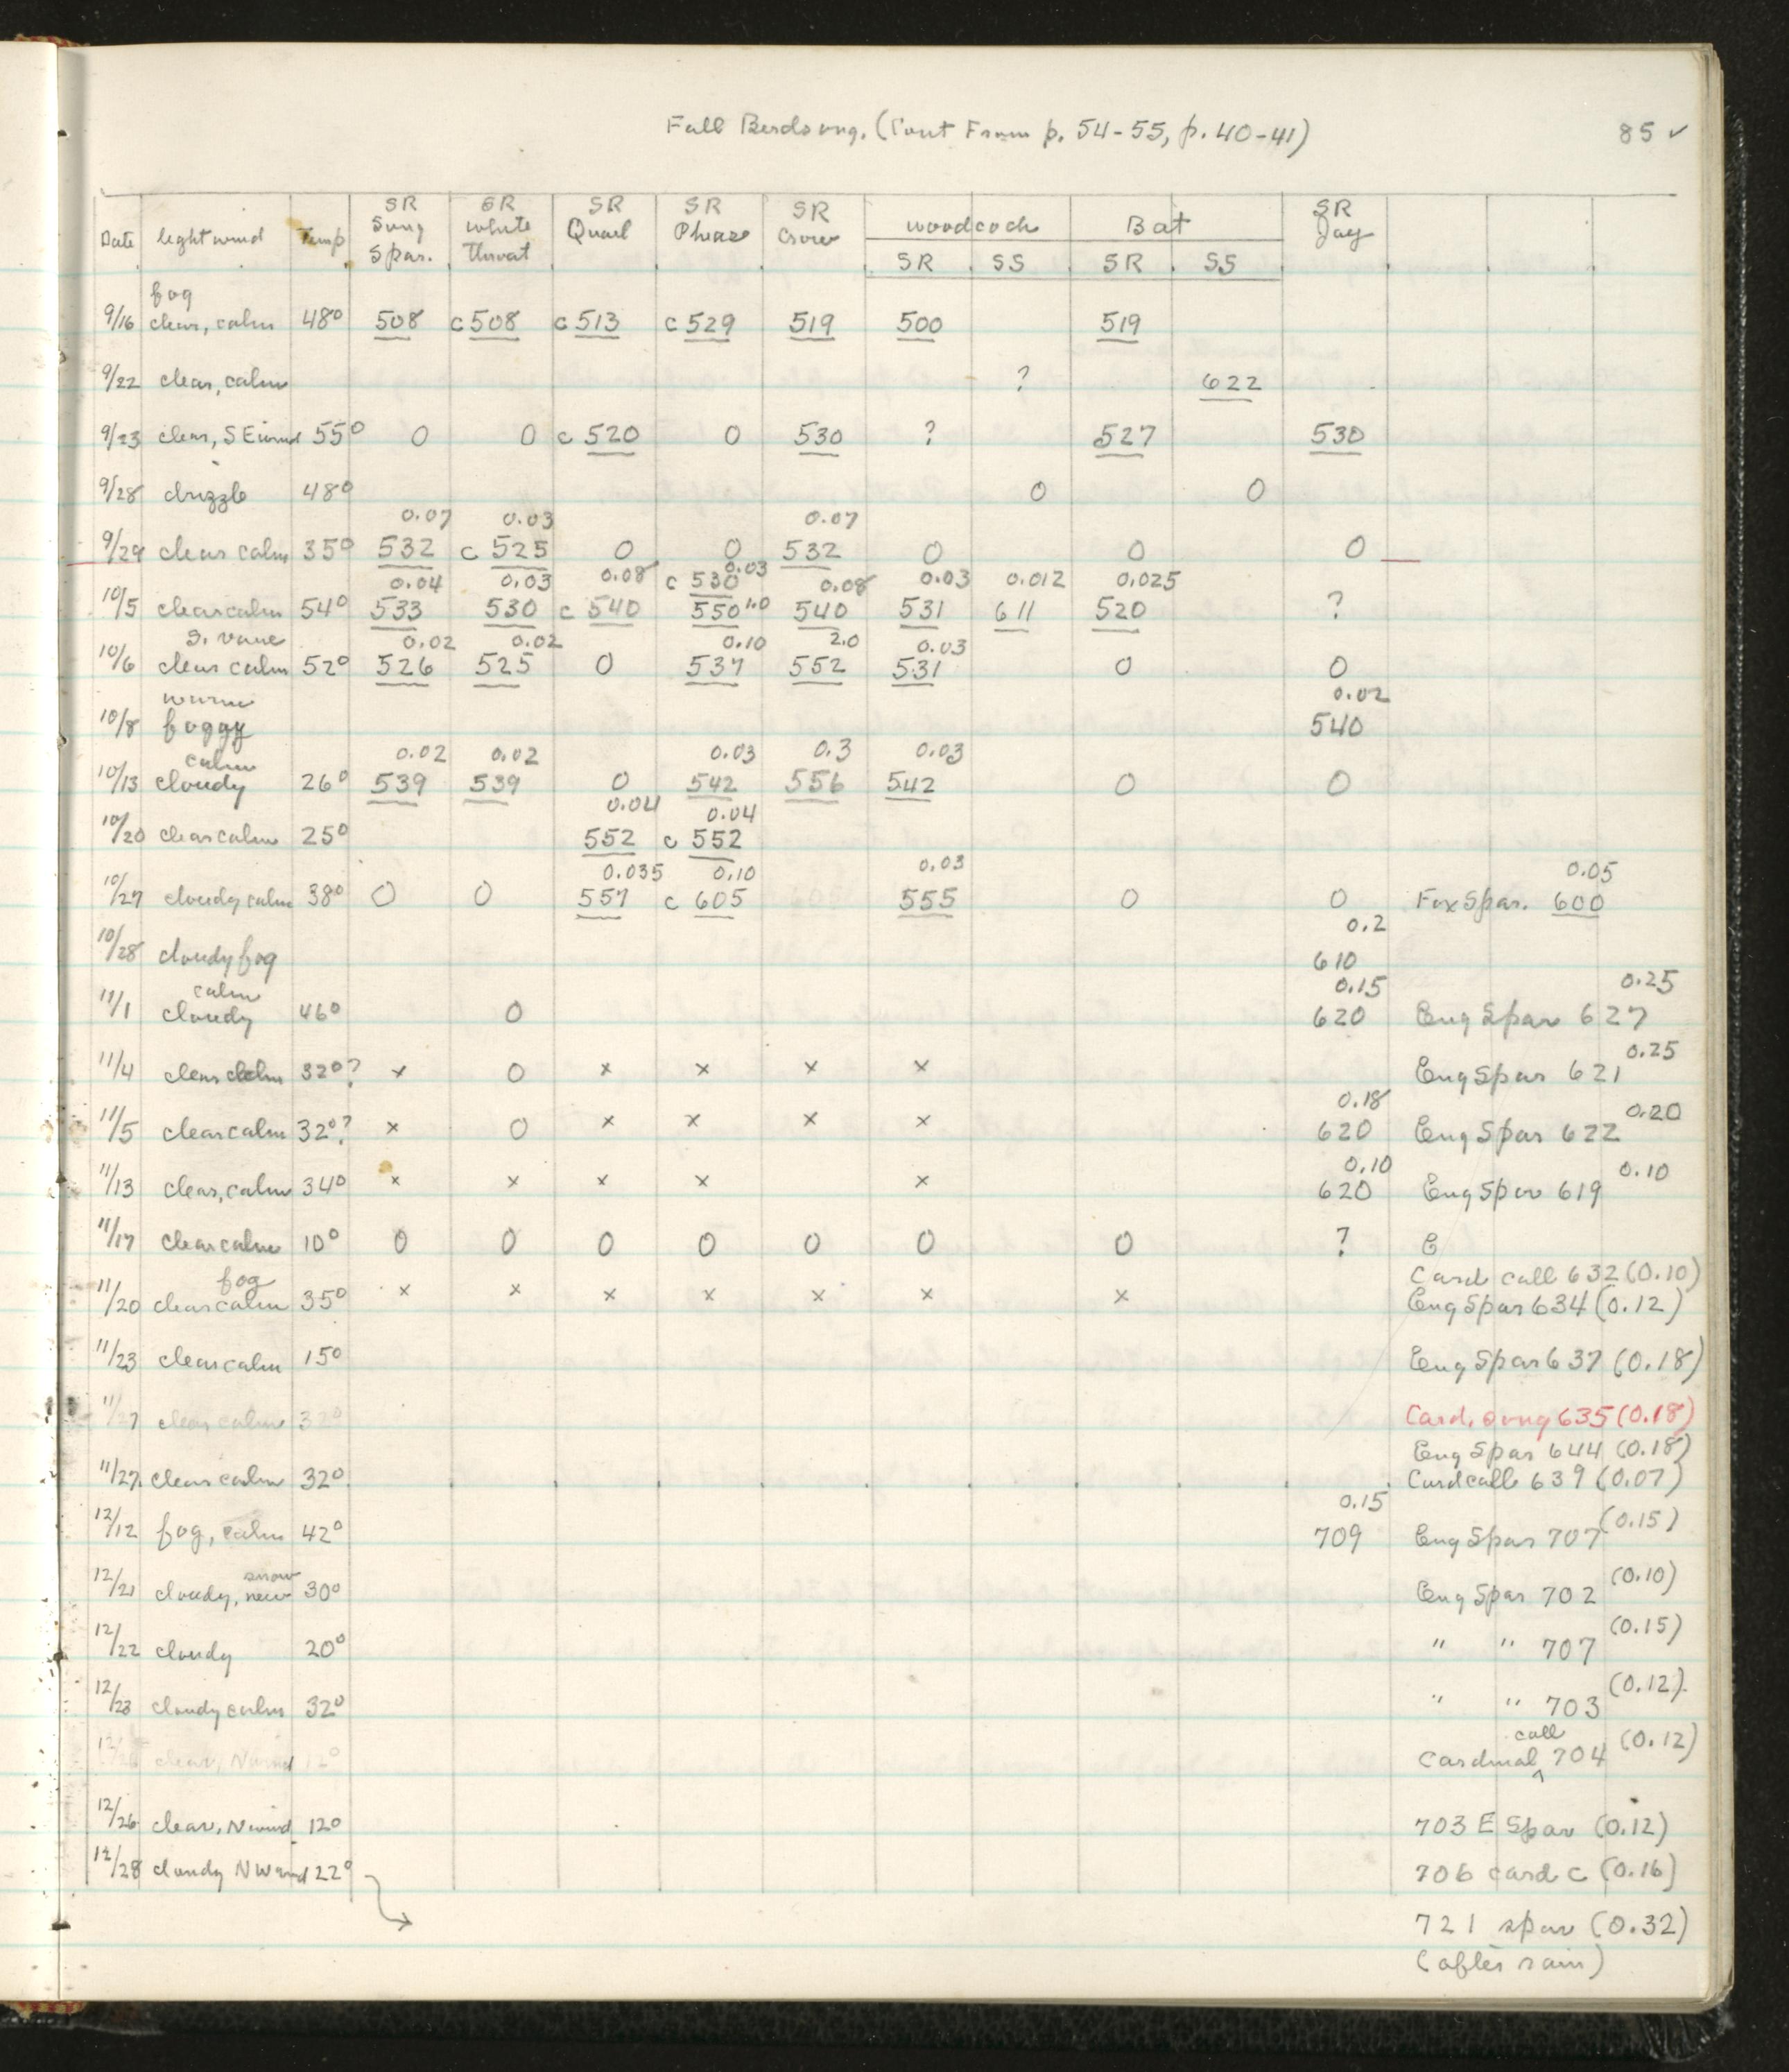 Fall Birdsong. (Cont From p. 54-55, p. 40-41) 85 ✓
Date light wind Temp SR Song Spar. SR White throat SR Quail SR Pheas SR Crow woodcock SR SS Bat SR SS SR Jay
fog
9/16 clear, calm 48° 508 c 508 c 513 c 529 519 500 519
9/22 clear, calm ? 622
9/23 clear, SE wind 55° 0 0 c 520 0 530 ? 527 530
9/28 drizzle 48° 0 0
0.07 0.03 0.07
9/29 clear calm 35° 532 c 525 0 0 532 0 0 0
0.04 0.03 0.08 c 530 0.03 0.08 0.03 0.012 0.025
10/5 clear calm 54° 533 530 c 540 550 1.0 540 531 611 520 ?
S. vane 0.02 0.02 0.10 2.0 0.03
10/6 clear calm 52° 526 525 0 537 552 531 0 0
warm 0.02
10/8 foggy 540
calm 0.02 0.02 0.03 0.3 0.03
10/13 cloudy 26° 539 539 0 542 556 542 0 0
0.04 0.04
10/20 clear calm 25° 552 c 552
0.035 0.10 0.03 0.05
10/27 cloudy calm 38° 0 0 557 c 605 555 0 0 Fox Spar. 600
0.2
10/28 cloudy fog 610
calm 0.15 0.25
11/1 cloudy 46° 0 620 Eng Spar 627
0.25
11/4 clear calm 32°? x 0 x x x x Eng Spar 621
0.18 0.20
11/5 clear calm 32°? x 0 x x x x 620 Eng Spar 622
0.10 0.10
11/13 clear, calm 34° x x x x x 620 Eng Spar 619
11/17 clear calm 10° 0 0 0 0 0 0 0 ? E
fog Card call 632 (0.10)
11/20 clear calm 35° x x x x x x x Eng Spar 634 (0.12)
11/23 clear calm 15° Eng Spar 637 (0.18)
11/27 clear calm 32° Card. song 635 (0.18)
Eng Spar 644 (0.18)
11/27 clear calm 32° Card call 639 (0.07)
0.15 (0.15)
12/12 fog, calm 42° 709 Eng Spar 707
snow (0.10)
12/21 cloudy, new 30° Eng Spar 702
(0.15)
12/22 cloudy 20° " " 707
(0.12)
12/23 cloudy calm 32° " " 703
call (0.12)
12/26 clear, N wind 12° Cardinal ^ 704
12/26 clear, N wind 12° 703 E Spar (0.12)
12/28 cloudy NW wind 22° 706 card c (0.16)
721 spar (0.32)
(after rain)